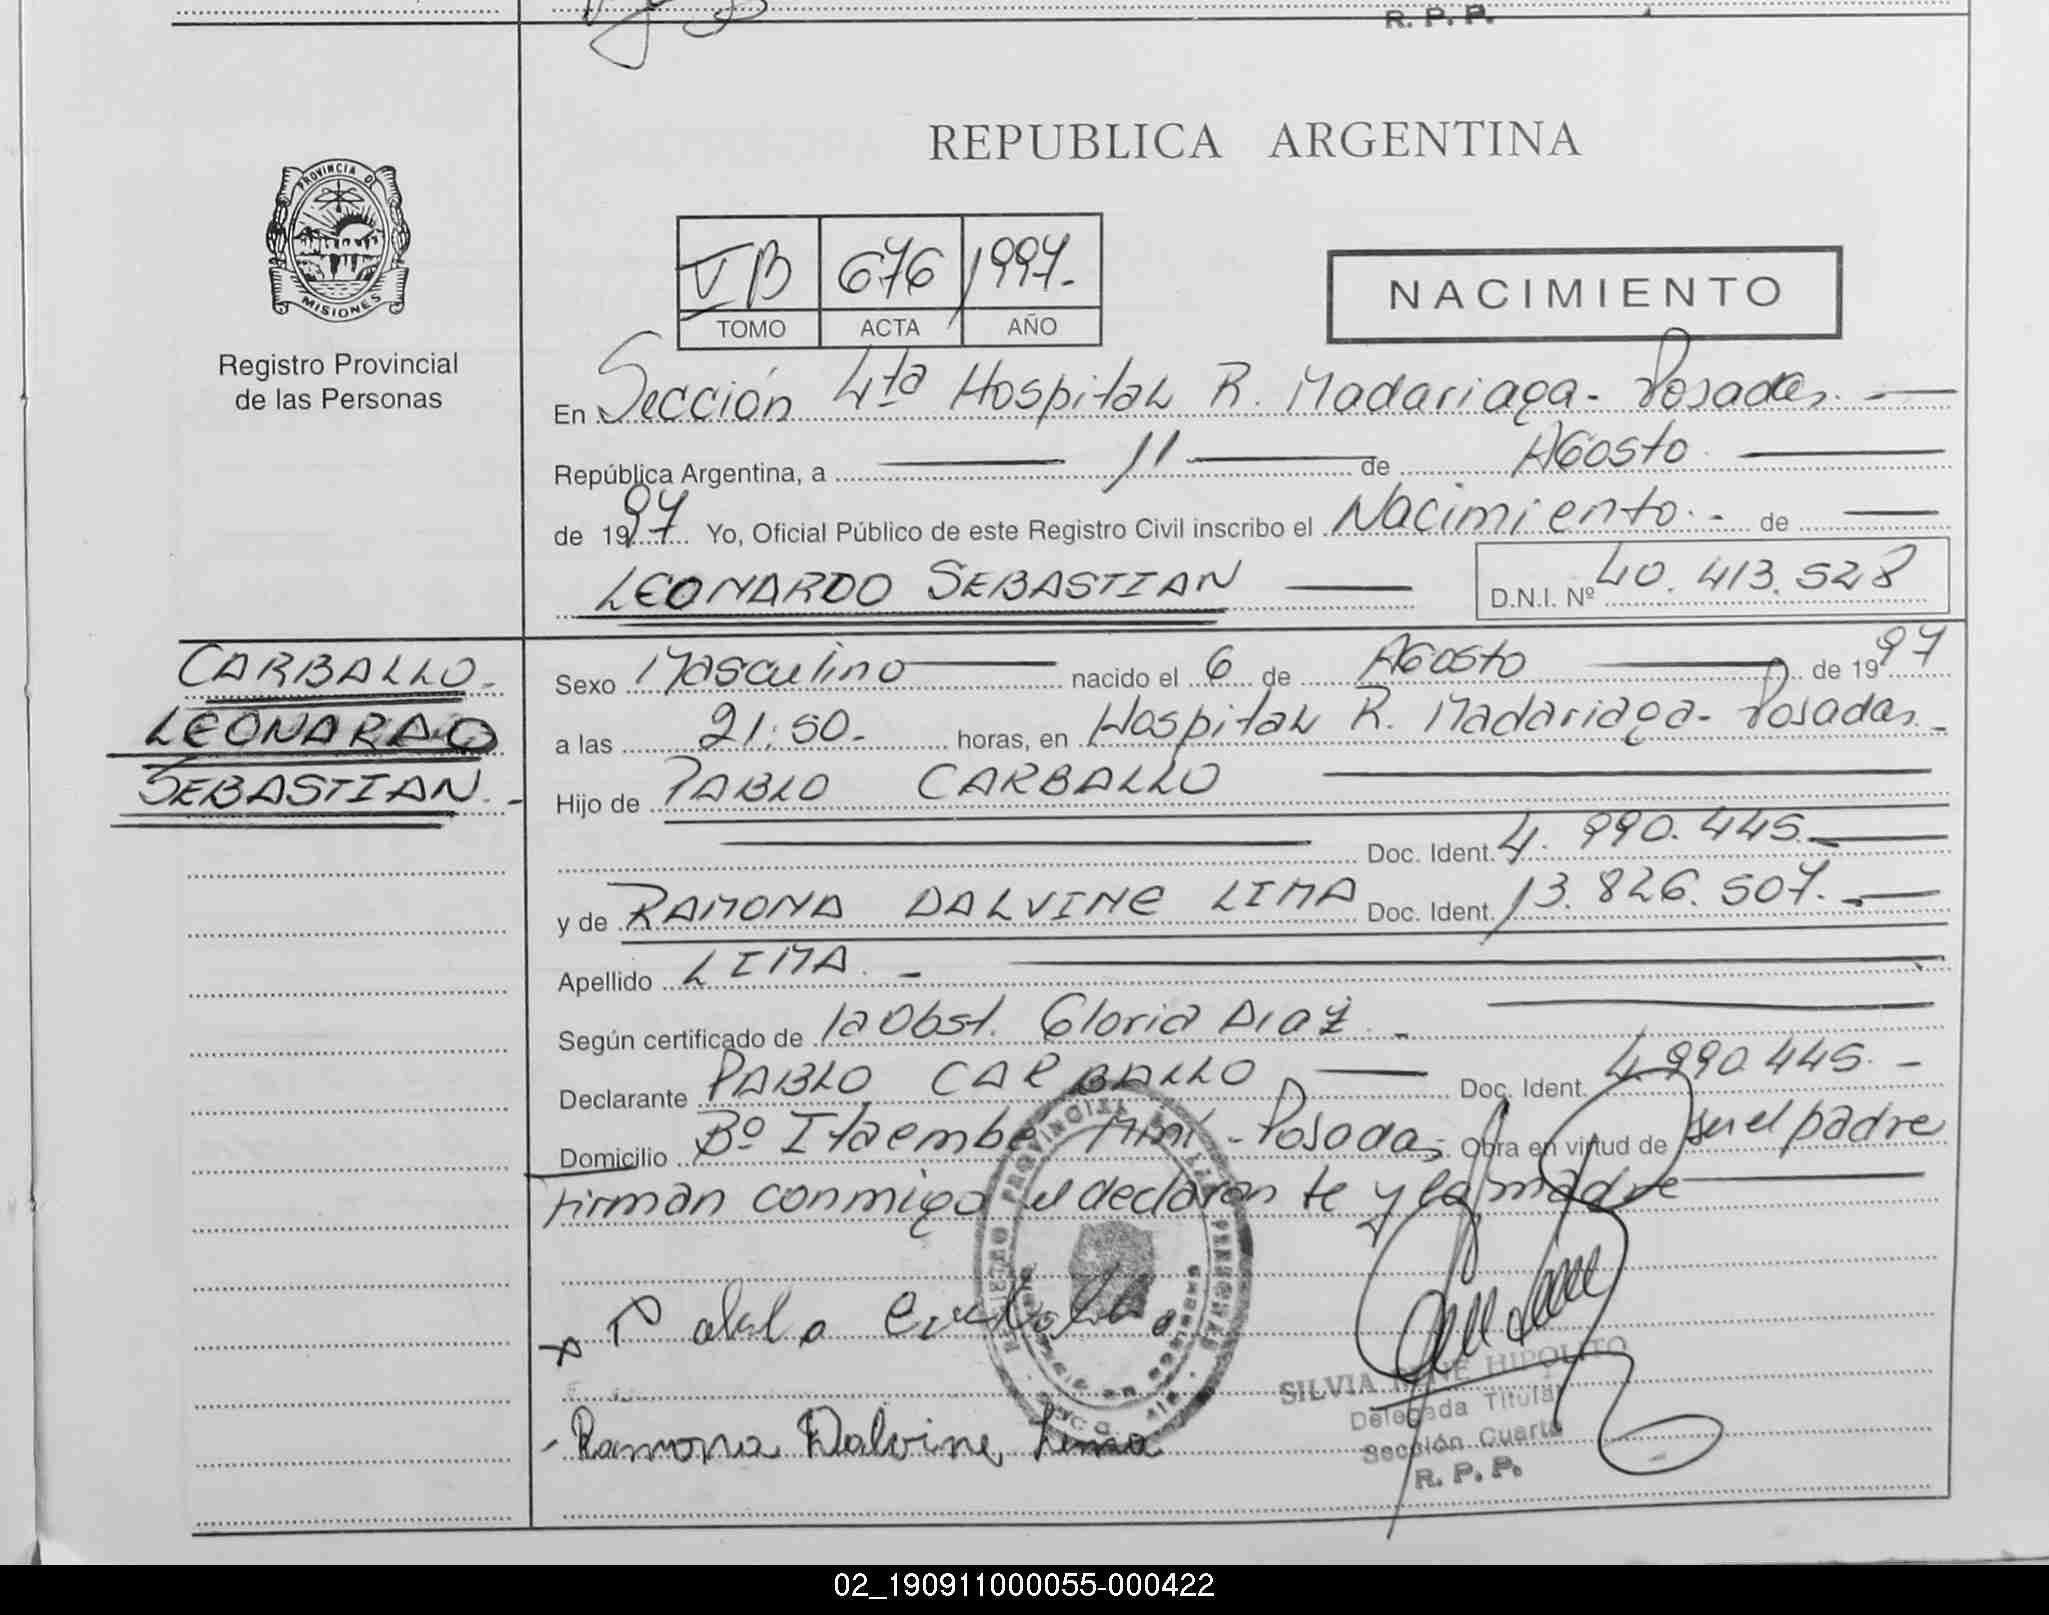 R. P. P.
REPUBLICA ARGENTINA
PROVINCIA DE
MISIONES
Registro Provincial
de las Personas
VB 676 1997.-
TOMO ACTA AÑO
NACIMIENTO
En Sección 4ta Hospital R. Madariaga - Posadas. -
República Argentina, a 11 de Agosto
de 1997 Yo, Oficial Público de este Registro Civil inscribo el Nacimiento. - de
LEONARDO SEBASTIAN
D.N.I. Nº 40.413.528
CARBALLO.
LEONARDO
SEBASTIAN. -
Sexo Masculino nacido el 6 de Agosto de 1997
a las 21:50.- horas, en Hospital R. Madariaga - Posadas. -
Hijo de PABLO CARBALLO
Doc. Ident. 4.990.445.
y de RAMONA DALVINE LIMA Doc. Ident. 13.826.507. -
Apellido LIMA. -
Según certificado de la Obst. Gloria Diaz. -
Declarante PABLO CARBALLO Doc. Ident. 4.990.445. -
Domicilio Bº Itaembe Mini - Posadas Obra en virtud de ser el padre
Firman conmigo el declarante y la madre
REGISTRO PROVINCIAL DE LAS PERSONAS
x Pablo Carballo
SILVIA IRENE HIPOLITO
Delegada Titular
Sección Cuarta
R. P. P.
Ramona Dalvine Lima
02_190911000055-000422